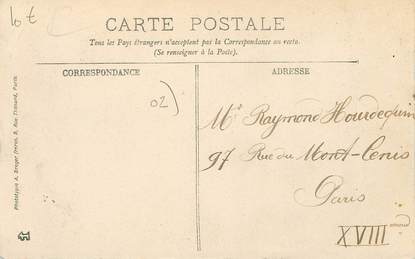 lot
CARTE POSTALE
Tous les Pays étrangers n'acceptent pas la Correspondance au recto.
(Se renseigner à la Poste).
CORRESPONDANCE
ADRESSE
02)
Mr Raymond Hourdequin
97 Rue du Mont-Cenis
Paris
XVIII
Phototypie A. Breger frères, 9, Rue Thénard, Paris